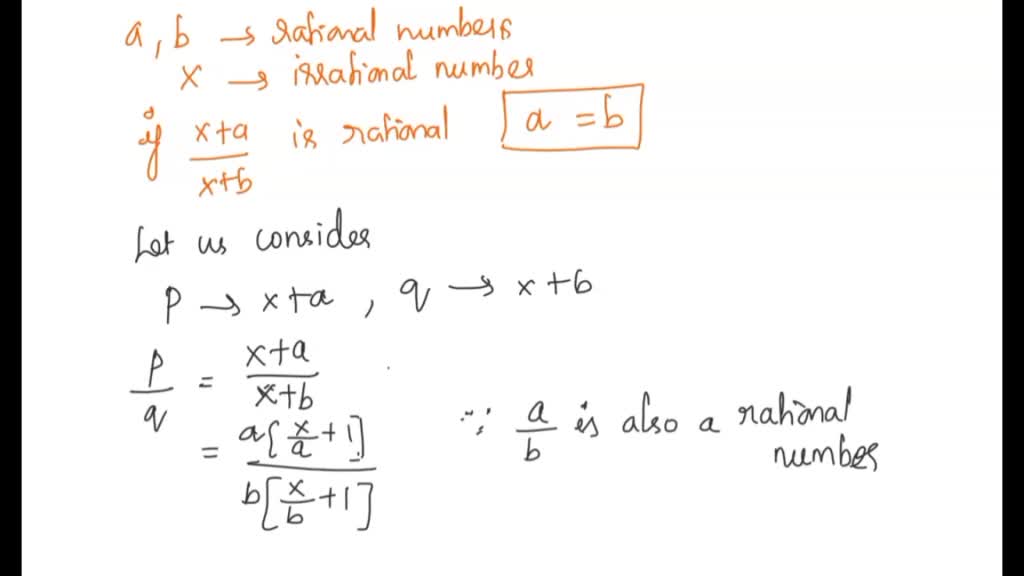 a, b → rational numbers
x → irrational number
if x+a / x+b is rational a = b
Let us consider
p → x+a , q → x+b
p/q = x+a / x+b
= a[x/a + 1] / b[x/b + 1]
∵ a/b is also a rational
number